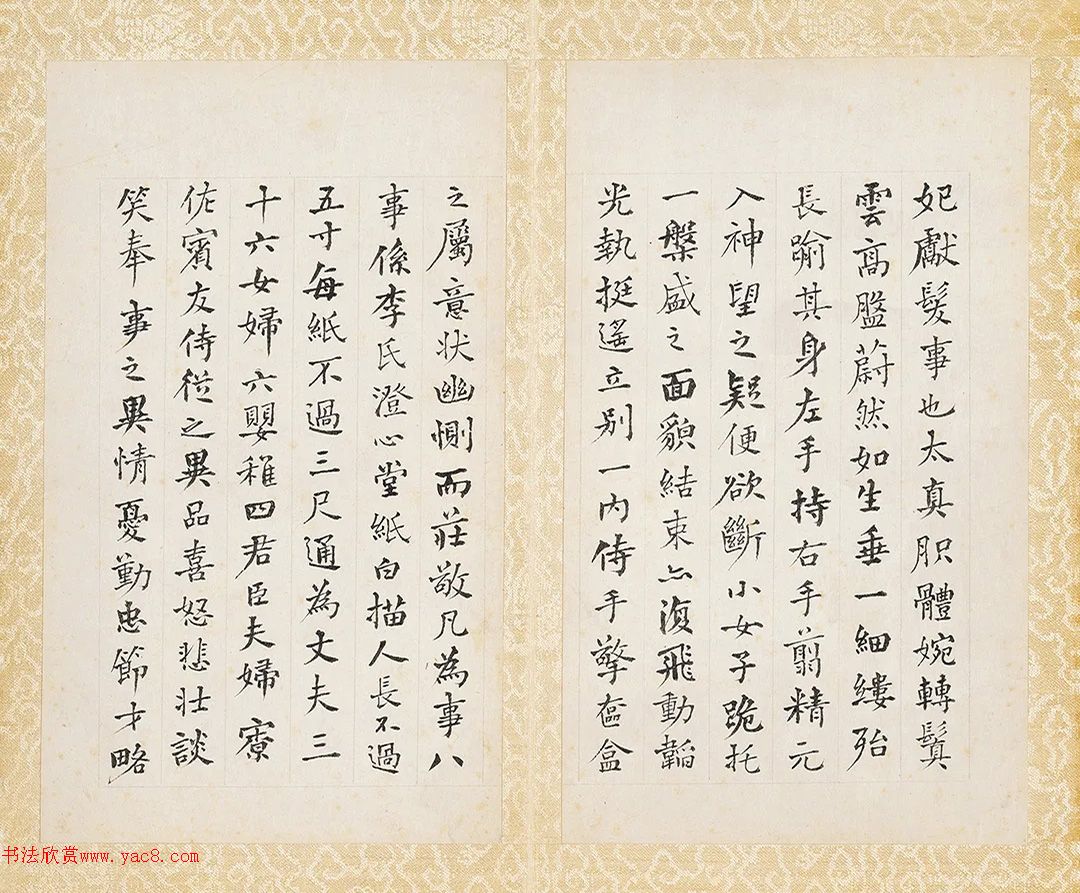 妃獻髮事也太真肌體婉轉鬒
雲高盤蔚然如生垂一細縷殆
長踰其身左手持右手翦精元
入神望之疑便欲斷小女子跪托
一槃盛之面貌結束亦復飛動韜
光執挺遙立別一內侍手擎奩盒
之屬意狀幽惻而莊敬凡為事八
事係李氏澄心堂紙白描人長不過
五寸每紙不過三尺通為丈夫三
十六女婦六嬰稚四君臣夫婦寮
佐賓友侍從之異品喜怒悲壯談
笑奉事之異情憂勤忠節才略
书法欣赏www.yac8.com